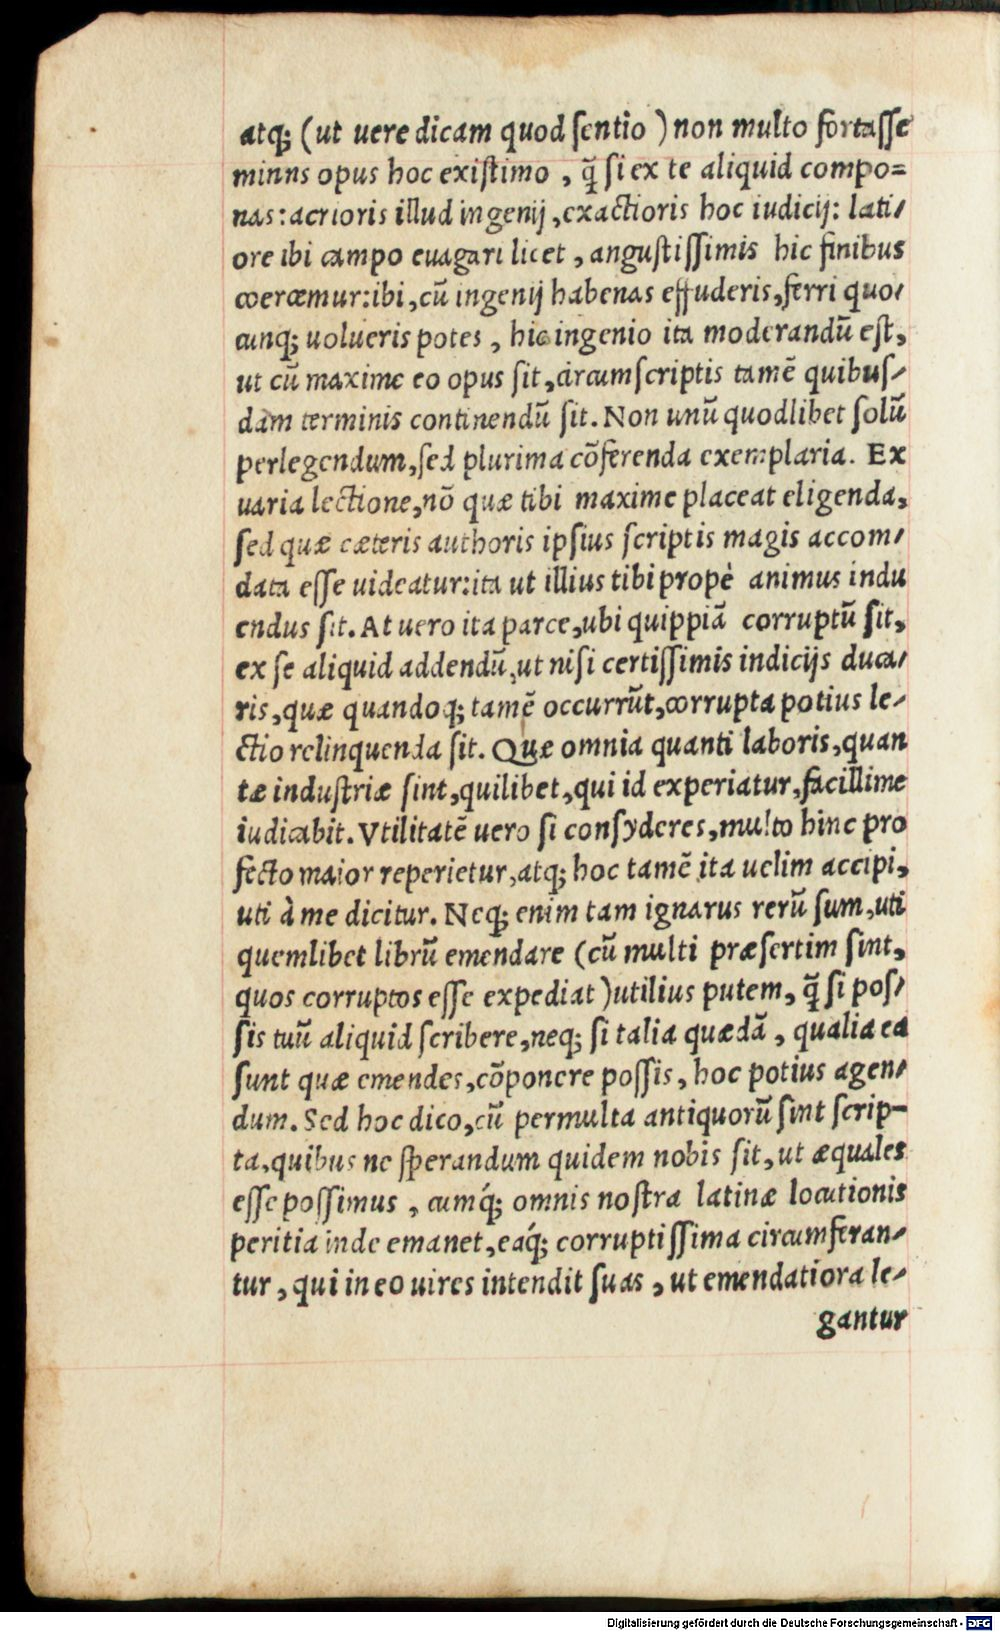 atq; (ut uere dicam quod sentio ) non multo fortasse
minns opus hoc existimo , q̃ si ex te aliquid compo=
nas: acrioris illud ingenij, exactioris hoc iudicij: lati-
ore ibi campo euagari licet , angustissimis hic finibus
coercemur: ibi, cũ ingenij habenas effuderis, ferri quo-
cunq; uolueris potes , hic ingenio ita moderandũ est,
ut cũ maxime eo opus sit, circumscriptis tamẽ quibus-
dam terminis continendũ sit. Non unũ quodlibet solũ
perlegendum, sed plurima cõferenda exemplaria. Ex
uaria lectione, nõ quæ tibi maxime placeat eligenda,
sed quæ cæteris authoris ipsius scriptis magis accom-
data esse uideatur: ita ut illius tibi propè animus indu
endus sit. At uero ita parce, ubi quippiã corruptũ sit,
ex se aliquid addendũ, ut nisi certissimis indicijs duca-
ris, quæ quandoq; tamẽ occurrũt, corrupta potius le-
ctio relinquenda sit. Quæ omnia quanti laboris, quan
tæ industriæ sint, quilibet, qui id experiatur, facillime
iudicabit. Vtilitatẽ uero si consyderes, multo hinc pro
fecto maior reperietur, atq; hoc tamẽ ita uelim accipi,
uti à me dicitur. Neq; enim tam ignarus rerũ sum, uti
quemlibet librũ emendare (cũ multi præsertim sint,
quos corruptos esse expediat ) utilius putem, q̃ si pos-
sis tuũ aliquid scribere, neq; si talia quædã , qualia ea
sunt quæ emendes, cõponere possis, hoc potius agen-
dum. Sed hoc dico, cũ permulta antiquorũ sint scrip-
ta, quibus ne sperandum quidem nobis sit, ut æquales
esse possimus , cumq́; omnis nostra latinæ locutionis
peritia inde emanet, eaq́; corruptissima circumferan-
tur , qui in eo uires intendit suas , ut emendatiora le-
gantur
Digitalisierung gefördert durch die Deutsche Forschungsgemeinschaft - DFG